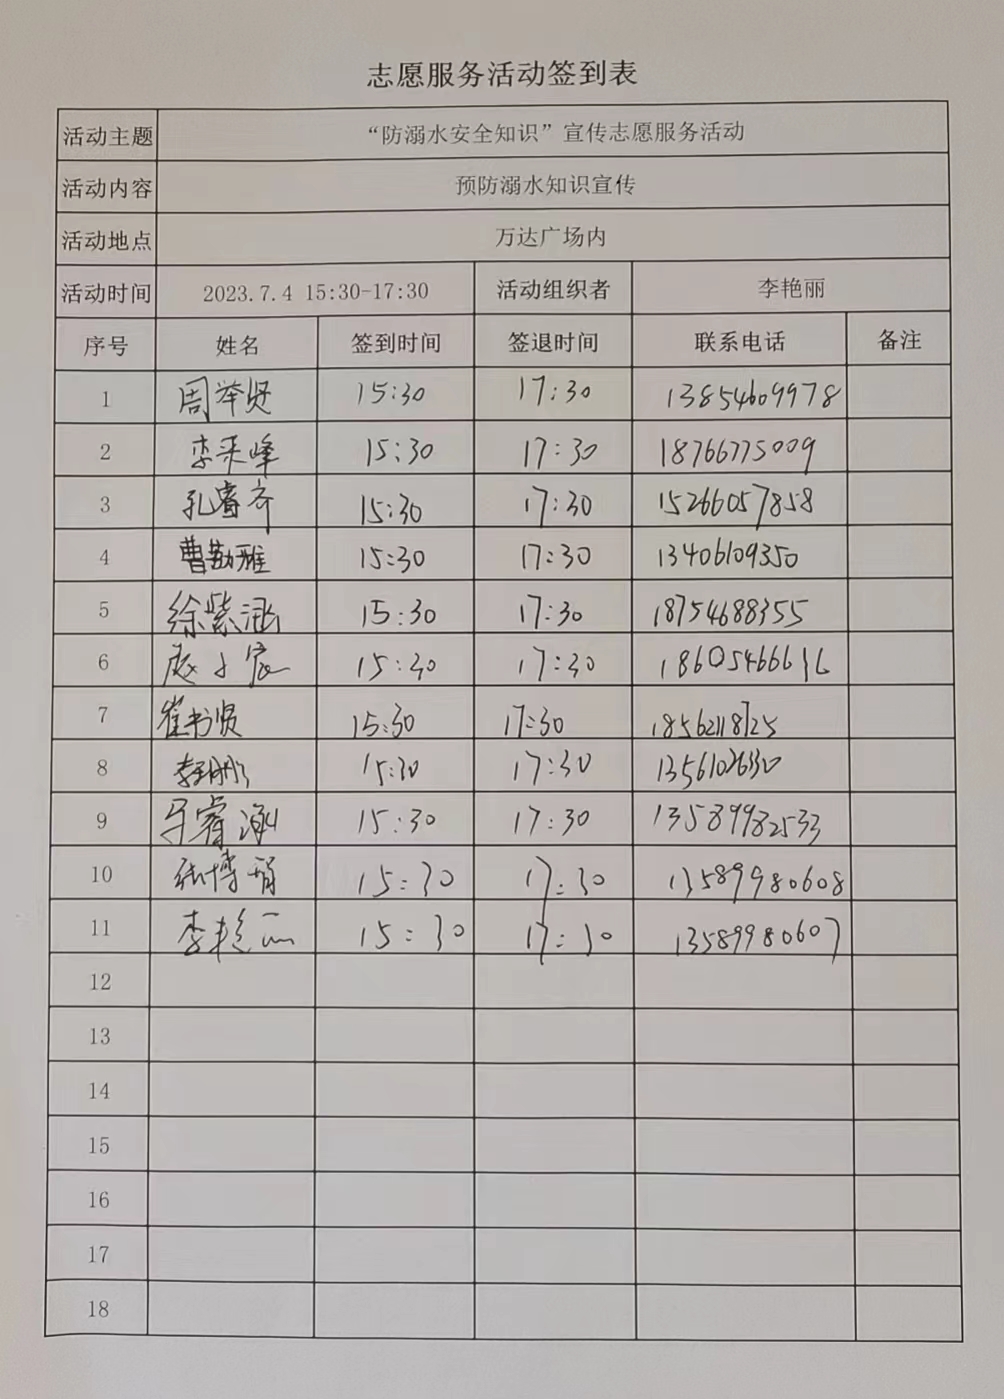 志愿服务活动签到表
活动主题 “防溺水安全知识”宣传志愿服务活动
活动内容 预防溺水知识宣传
活动地点 万达广场内
活动时间 2023.7.4 15:30-17:30 活动组织者 李艳丽
序号 姓名 签到时间 签退时间 联系电话 备注
1 周举贤 15:30 17:30 13854609978
2 李采峰 15:30 17:30 18766775009
3 孔睿齐 15:30 17:30 15266057858
4 曹勤雅 15:30 17:30 13406109350
5 徐紫涵 15:30 17:30 18754688355
6 15:30 17:30 18605466616
7 崔书贤 15:30 17:30 18562118725
8 15:30 17:30
9 15:30 17:30 13589982533
10 张博 15:30 17:30 13589980608
11 李艳丽 15:30 17:30 13589980607
12
13
14
15
16
17
18